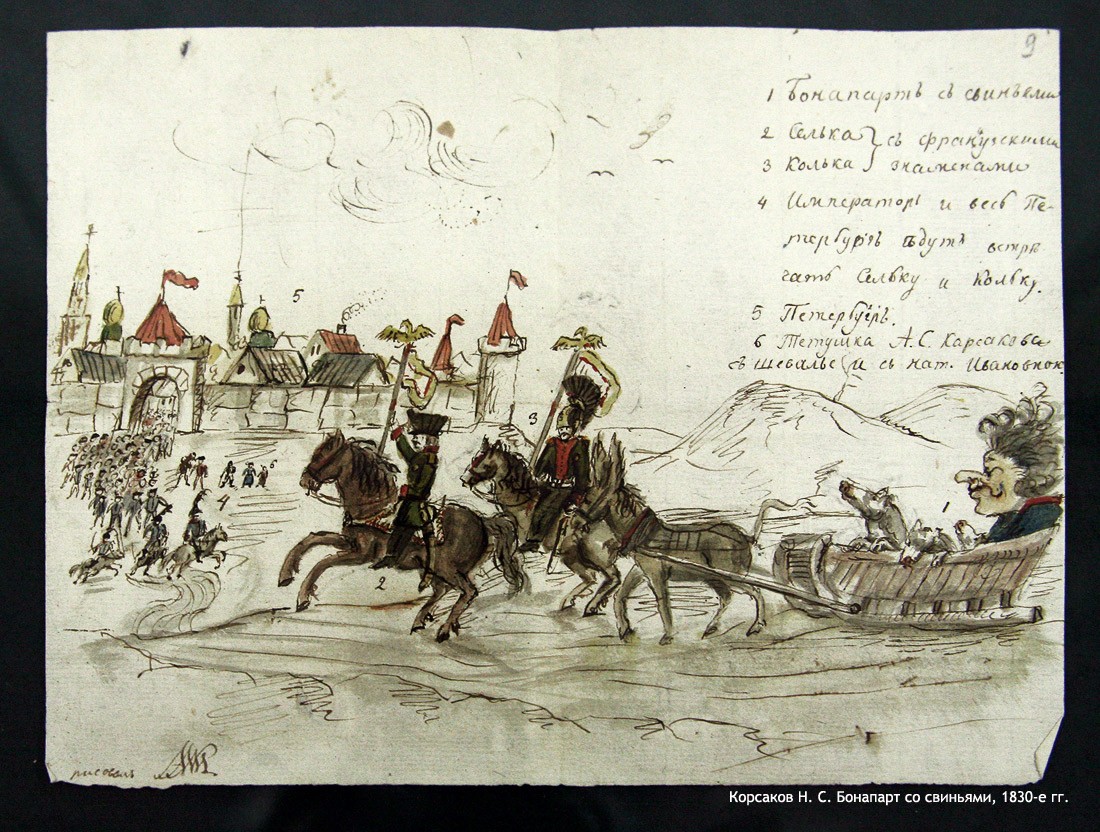 9
1 Бонапартъ съ свиньями
2 Селька } съ французскими
3 Колька } знаменами
4 Императоръ и весь Пе-
тербургъ ѣдутъ встрѣ
чать Сельку и Кольку.
5 Петербургъ.
6 Тетушка А. С. Карсакова
съ Шевалье и съ нат. Ивановною
5
3
4
1
2
рисовалъ
Корсаков Н. С. Бонапарт со свиньями, 1830-е гг.